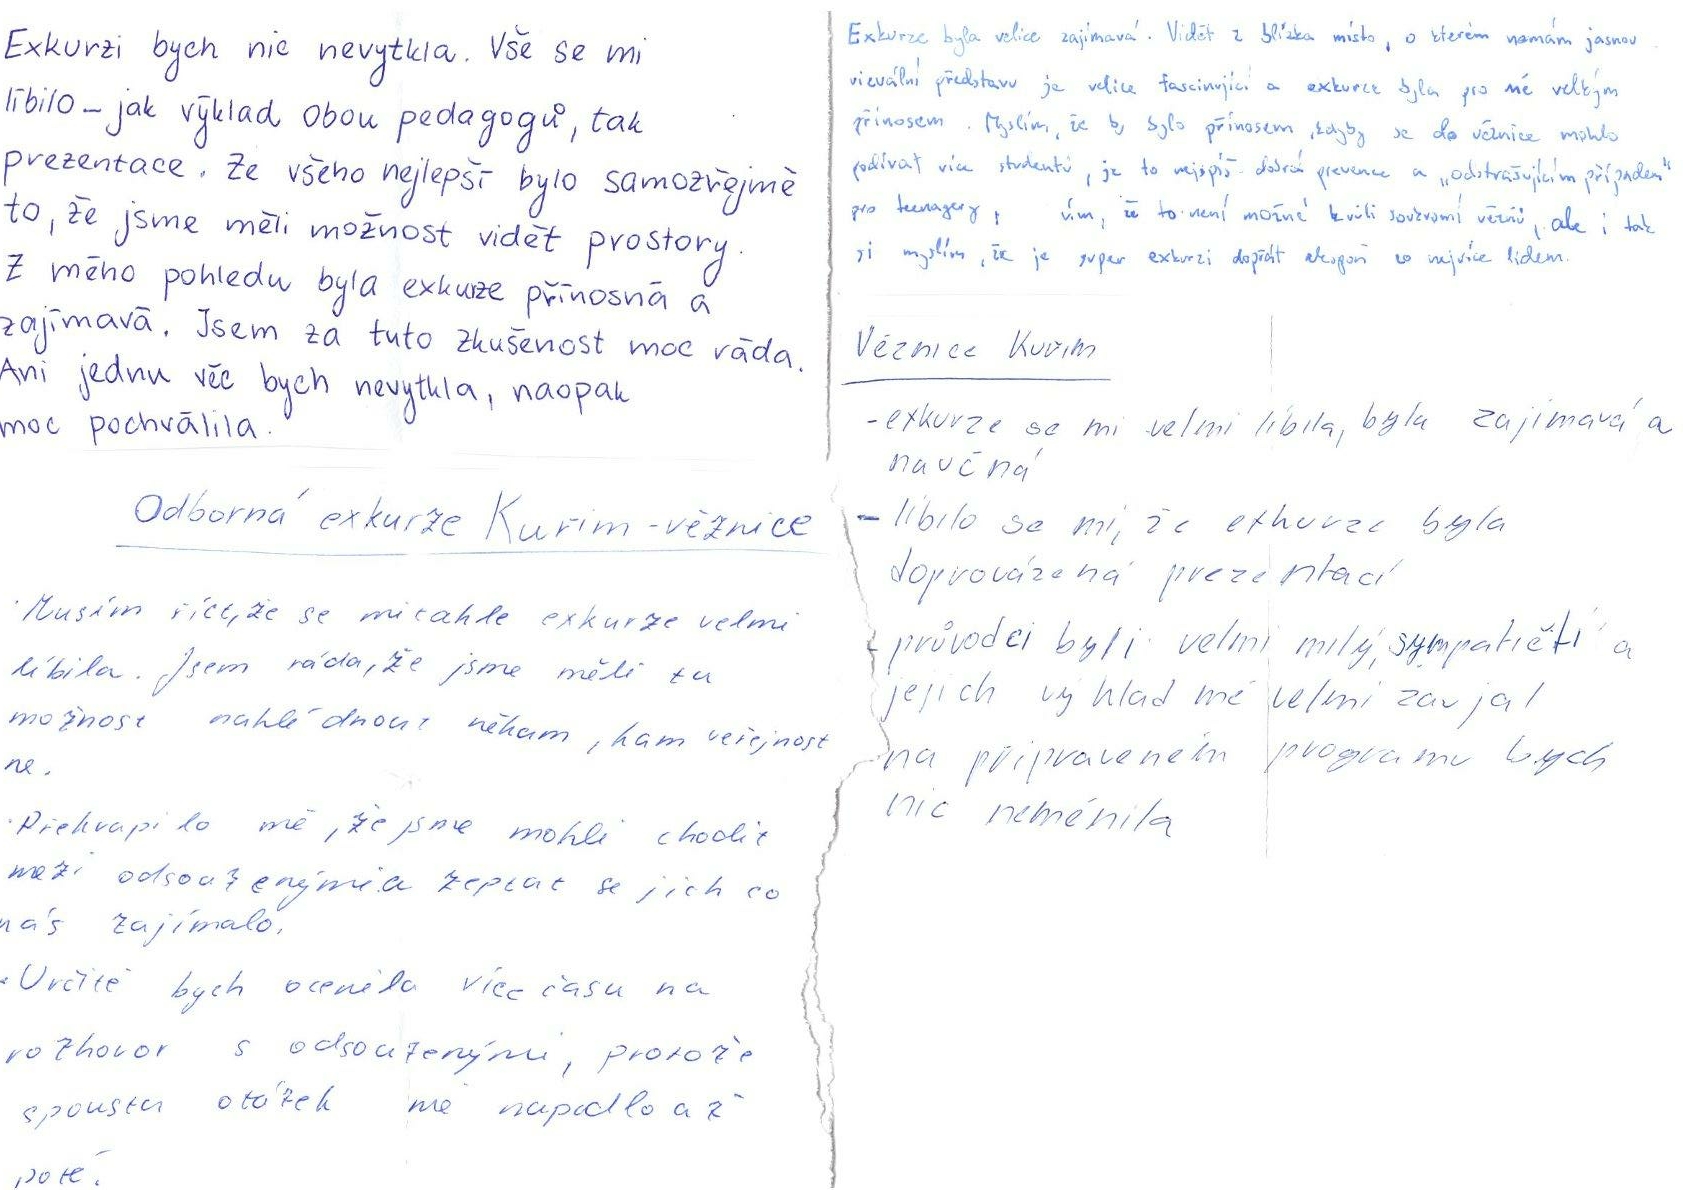 Exkurzi bych nic nevytkla. Vše se mi
líbilo – jak výklad obou pedagogů, tak
prezentace. Ze všeho nejlepší bylo samozřejmě
to, že jsme měli možnost vidět prostory.
Z mého pohledu byla exkuze přínosná a
zajímavá. Jsem za tuto zkušenost moc ráda.
Ani jednu věc bych nevytkla, naopak
moc pochválila.
Odborná exkurze Kuřim - věznice
· Musím říct, že se mi tahle exkurze velmi
líbila. Jsem ráda, že jsme měli tu
možnost nahlédnout někam, kam veřejnost
ne.
· Překvapilo mě, že jsme mohli chodit
mezi odsouzenými a zeptat se jich co
nás zajímalo.
· Určitě bych ocenila více času na
rozhovor s odsouzenými, protože
spousta otázek mě napadlo až
poté.
Exkurze byla velice zajímavá. Vidět z blízka místo, o kterém nemám jasnou
vizuální představu je velice fascinující a exkurze byla pro mě velkým
přínosem. Myslím, že by bylo přínosem, kdyby se do věznice mohlo
podívat více studentů, je to nejspíš dobrá prevence a „odstrašujícím případem"
pro teenagery, vím, že to není možné kvůli soukromí vězňů, ale i tak
si myslím, že je super exkurzi dopřát alespoň co nejvíce lidem.
Věznice Kuřim
- exkurze se mi velmi líbila, byla zajímavá a
naučná
- líbilo se mi, že exkurze byla
doprovázená prezentací
- průvodci byli velmi milý, sympatičtí a
jejich výklad mě velmi zaujal
na připraveném programu bych
nic neměnila